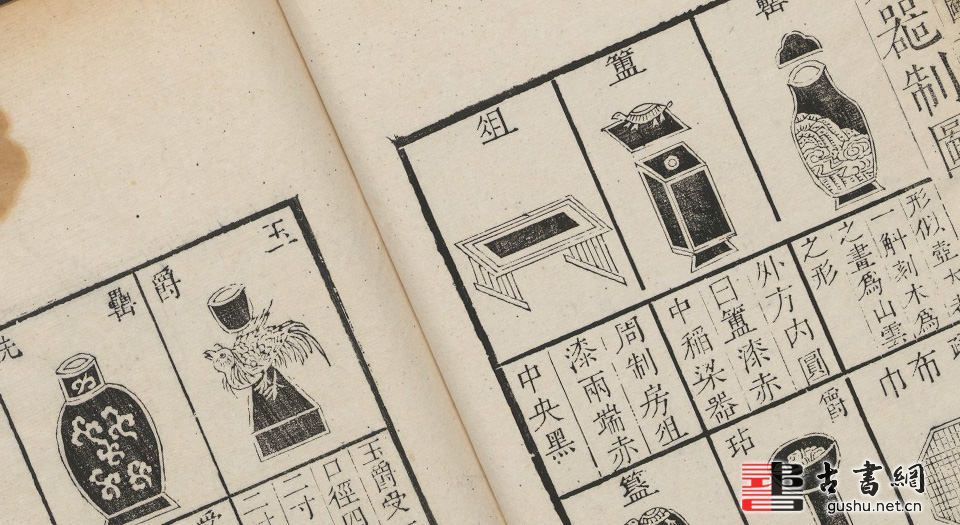 器制圖
簠
俎
形似壺大
一斛刻木為
之畫為山雲
之形
外方内圓
曰簠漆赤
中稻梁器
周制房俎
漆兩端赤
中央黑
布巾
爵坫
簋
玉爵
罍
玉爵受
口徑四
二寸
古書網
gushu.net.cn